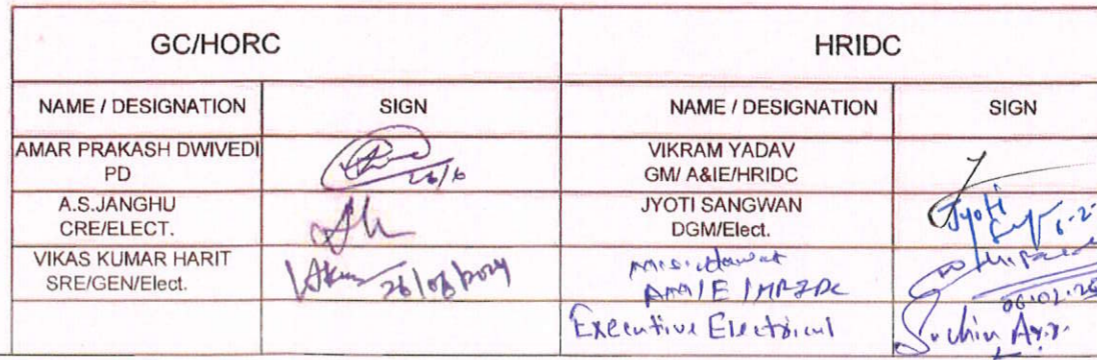 GC/HORC
HRIDC
NAME / DESIGNATION
SIGN
NAME / DESIGNATION
SIGN
AMAR PRAKASH DWIVEDI
PD
26/6
VIKRAM YADAV
GM/ A&IE/HRIDC
A.S.JANGHU
CRE/ELECT.
JYOTI SANGWAN
DGM/Elect.
Jyoti
VIKAS KUMAR HARIT
SRE/GEN/Elect.
26/06/2024
Executive Electrical